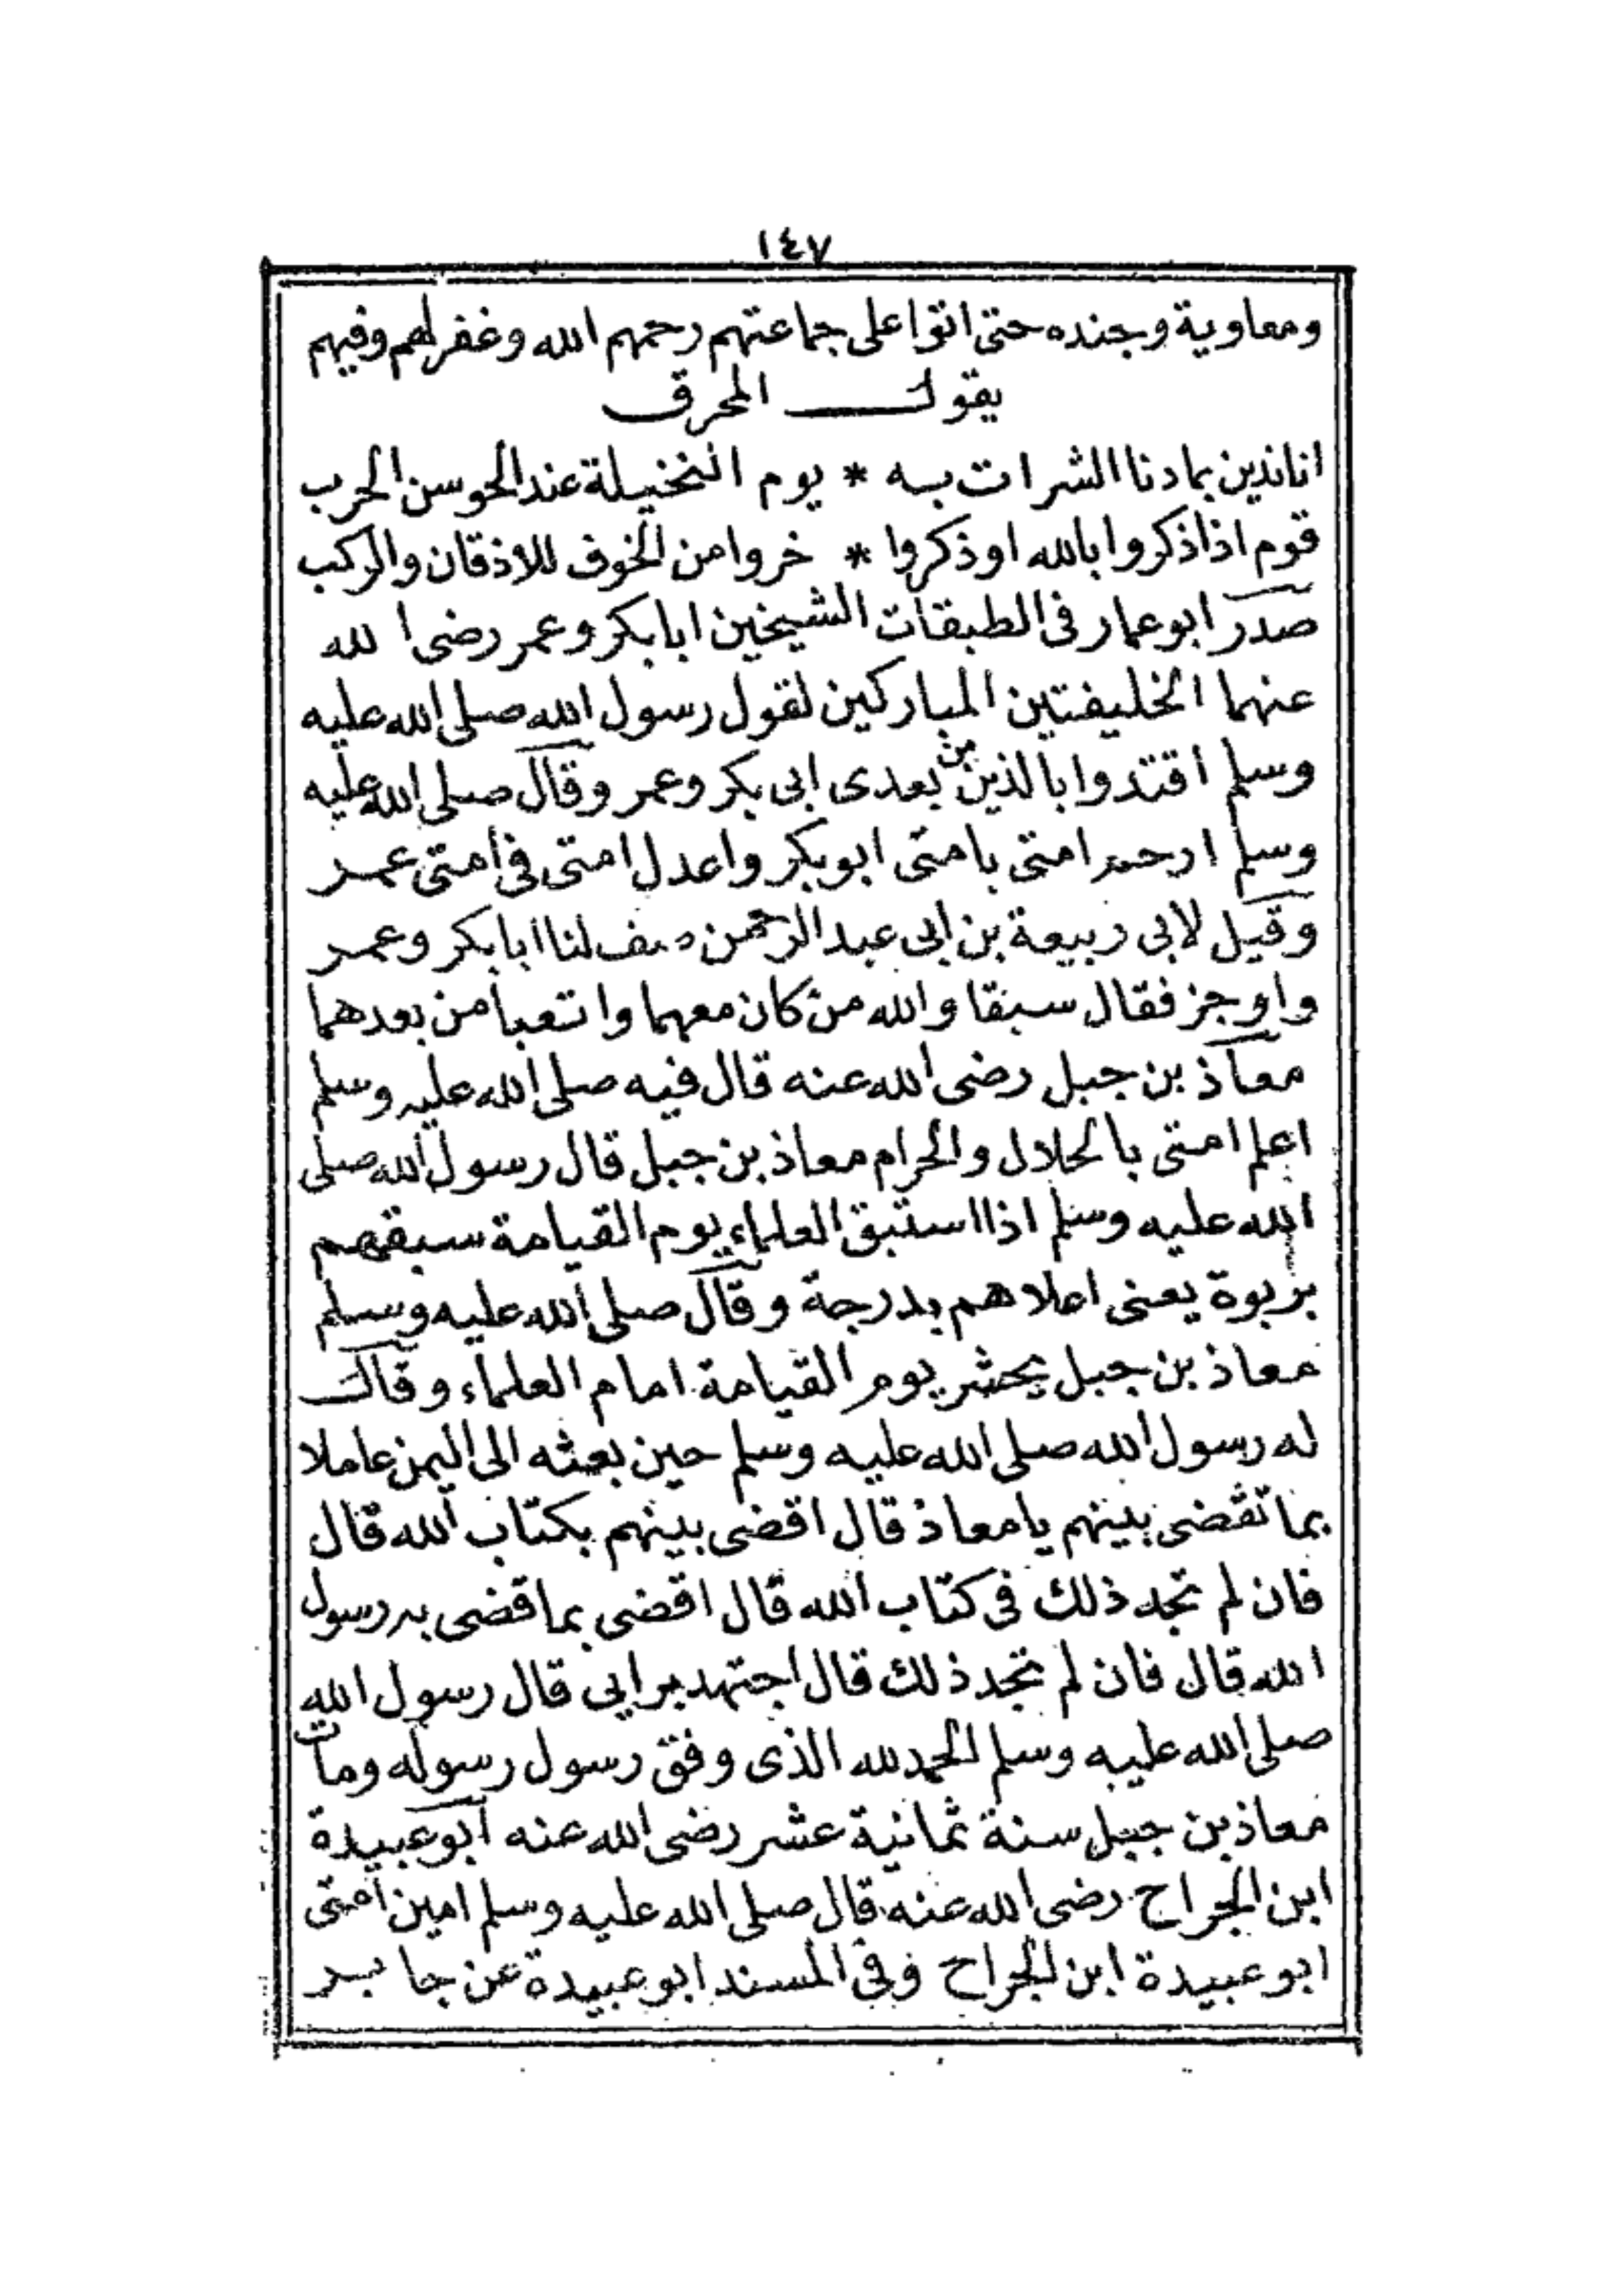 ١٤٧
ومعاوية وجنده حتى اتوا على جماعتهم رحمهم الله وغفر لهم وفيهم
يقول المحرق
انا ندين بما دنا الشرات به * يوم النخيلة عند الجوسن الحرب
قوم اذا ذكروا بالله او ذكروا * خروا من الخوف للاذقان والركب
صدر ابو عمار فى الطبقات الشيخين ابا بكر وعمر رضى الله
عنهما الخليفتين المباركين لقول رسول الله صلى الله عليه
وسلم اقتدوا بالذين من بعدى ابى بكر وعمر وقال صلى الله عليه
وسلم ارحم امتى بامتى ابو بكر واعدل امتى فى امتى عمر
وقيل لابى ربيعة بن ابى عبد الرحمن صف لنا ابا بكر وعمر
واوجز فقال سبقا والله من كان معهما واتعبا من بعدهما
معاذ بن جبل رضى الله عنه قال فيه صلى الله عليه وسلم
اعلم امتى بالحلال والحرام معاذ بن جبل قال رسول الله صلى
الله عليه وسلم اذا استبق العلماء يوم القيامة سبقهم
بربوة يعنى اعلاهم بدرجة وقال صلى الله عليه وسلم
معاذ بن جبل يحشر يوم القيامة امام العلماء وقال
له رسول الله صلى الله عليه وسلم حين بعثه الى اليمن عاملا
بما تقضى بينهم يا معاذ قال اقضى بينهم بكتاب الله قال
فان لم تجد ذلك فى كتاب الله قال اقضى بما قضى به رسول
الله قال فان لم تجد ذلك قال اجتهد برايى قال رسول الله
صلى الله عليه وسلم الحمد لله الذى وفق رسول رسوله ومات
معاذ بن جبل سنة ثمانية عشر رضى الله عنه ابو عبيدة
ابن الجراح رضى الله عنه قال صلى الله عليه وسلم امين امتى
ابو عبيدة ابن الجراح وفى المسند ابو عبيدة عن جابر